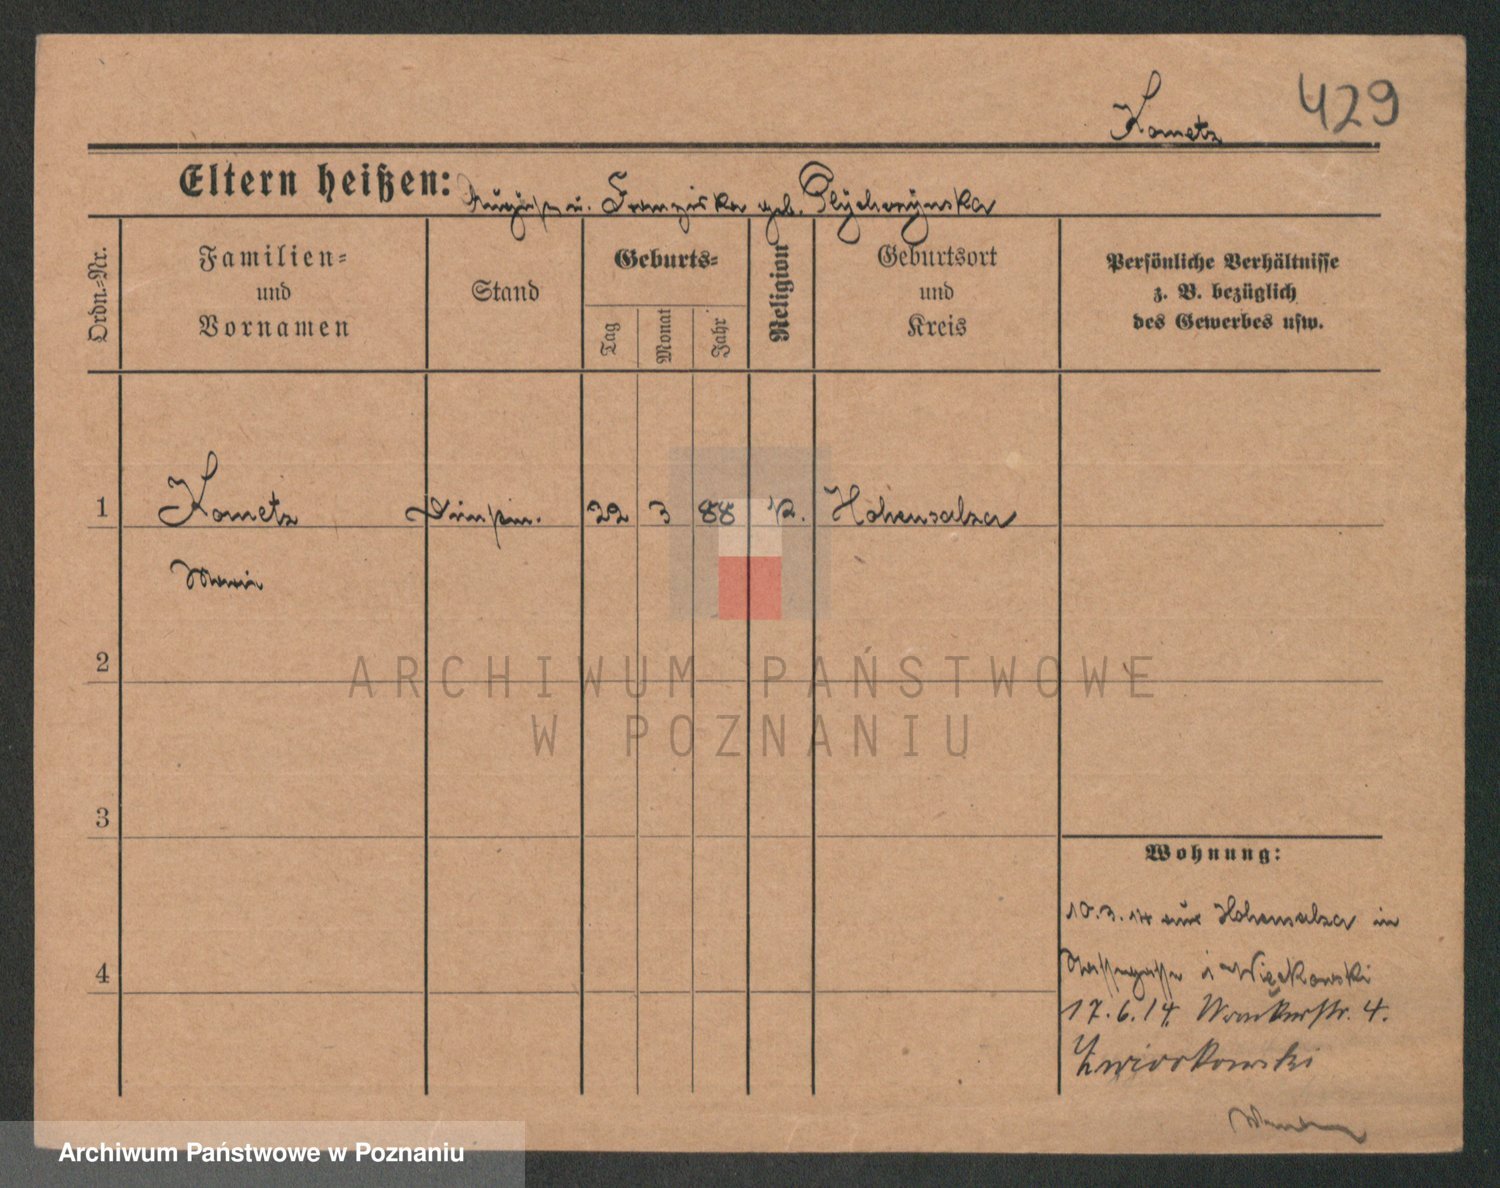 429
Kometz
Eltern heißen: August u. Franziska geb.
Ordn.-Nr.
Familien-
und
Vornamen
Stand
Geburts-
Tag
Monat
Jahr
Religion
Geburtsort
und
Kreis
Persönliche Verhältnisse
z. B. bezüglich
des Gewerbes usw.
1 Kometz 22 3 88 k. Hohensalza
Maria
2
3
4
Wohnung:
10.3.14 aus Hohensalza in
Więckowski
17.6.14. 4.
ARCHIWUM PAŃSTWOWE
W POZNANIU
Archiwum Państwowe w Poznaniu